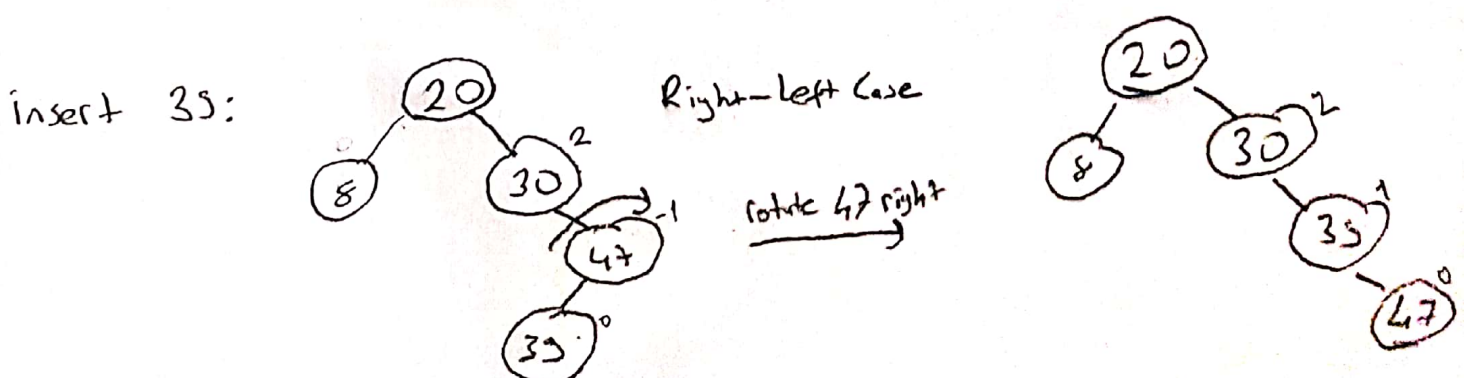 insert 39:
20
8
30
2
47
-1
39
0
Right-Left Case
rotate 47 right
20
8
30
2
39
1
47
0